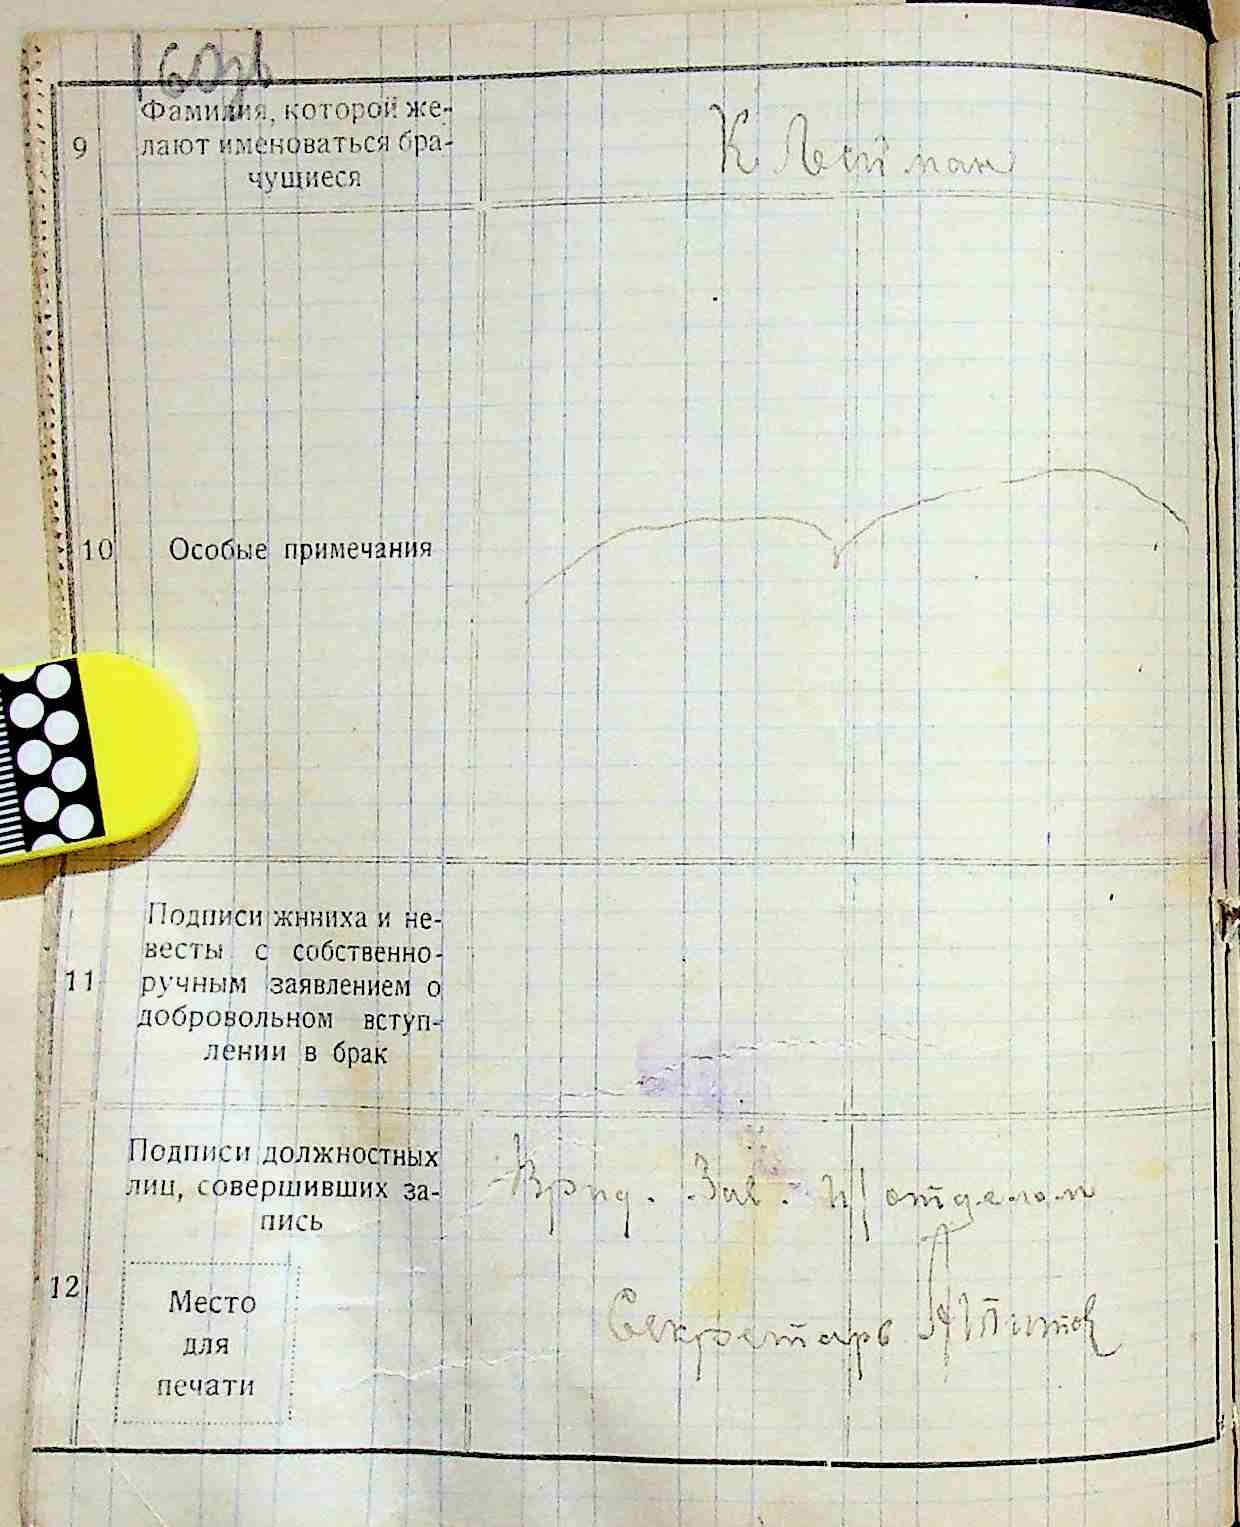 160зв
9
Фамилия, которой же-
лают именоваться бра-
чущиеся
Клейман
10
Особые примечания
11
Подписи жнниха и не-
весты с собственно-
ручным заявлением о
добровольном вступ-
лении в брак
12
Подписи должностных
лиц, совершивших за-
пись
Врид. Зав. п/отделом
Место
для
печати
Секретарь